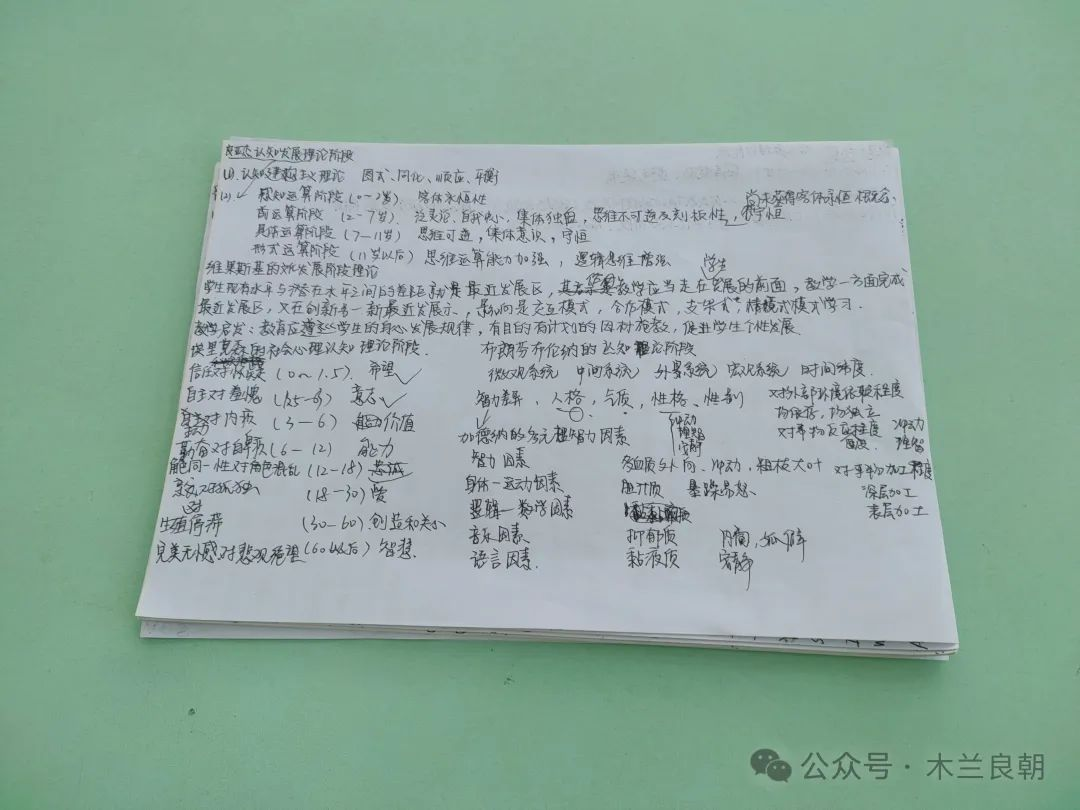 认知发展理论阶段
(1) 认知建构主义理论 图式、同化、顺应、平衡
(2) 感知运算阶段 (0-2岁) 客体永恒性 尚未获得客体永恒概念
前运算阶段 (2-7岁) 泛灵论、自我中心、集体独白,思维不可逆及刻板性,守恒
具体运算阶段 (7-11岁) 思维可逆,集体意识,守恒
形式运算阶段 (11岁以后) 思维运算能力加强,逻辑思维增强
维果斯基的发展阶段理论
学生
学生现有水平与潜在水平之间的差距就是最近发展区,教学应当走在发展的前面,教学一方面完成
最近发展区,又在创新另一新最近发展,影响是交互模式,合作模式,支架式,情境式模式学习.
教学启发:教育应遵照学生的身心发展规律,有目的有计划的因材施教,促进学生个性发展
埃里克森的社会心理认知理论阶段.
信任对怀疑 (0~1.5). 希望
自主对羞愧 (1.5-3) 意志
主动对内疚 (3-6) 能动价值
勤奋对自卑 (6-12) 能力
角色同一性对角色混乱 (12-18) 忠诚
亲密对孤独 (18-30) 爱
生殖停滞 (30-60) 创造和关心
完美无憾对悲观绝望 (60以后) 智慧
布朗芬布伦纳的认知理论阶段
微观系统 中间系统 外层系统 宏观系统 时间纬度.
智力差异、人格,气质,性格、性别
对外部环境依赖程度
场依存,场独立
对事物反应程度 冲动
理智
冲动
理智
安静
对事物加工程度
深层加工
表层加工
加德纳的多元智力因素
智力因素
身体-运动因素
逻辑-数学因素
音乐因素
语言因素.
多血质 外向、冲动,粗枝大叶
胆汁质 暴躁易怒
抑郁质 内向,孤僻
黏液质 安静
公众号·木兰良朝